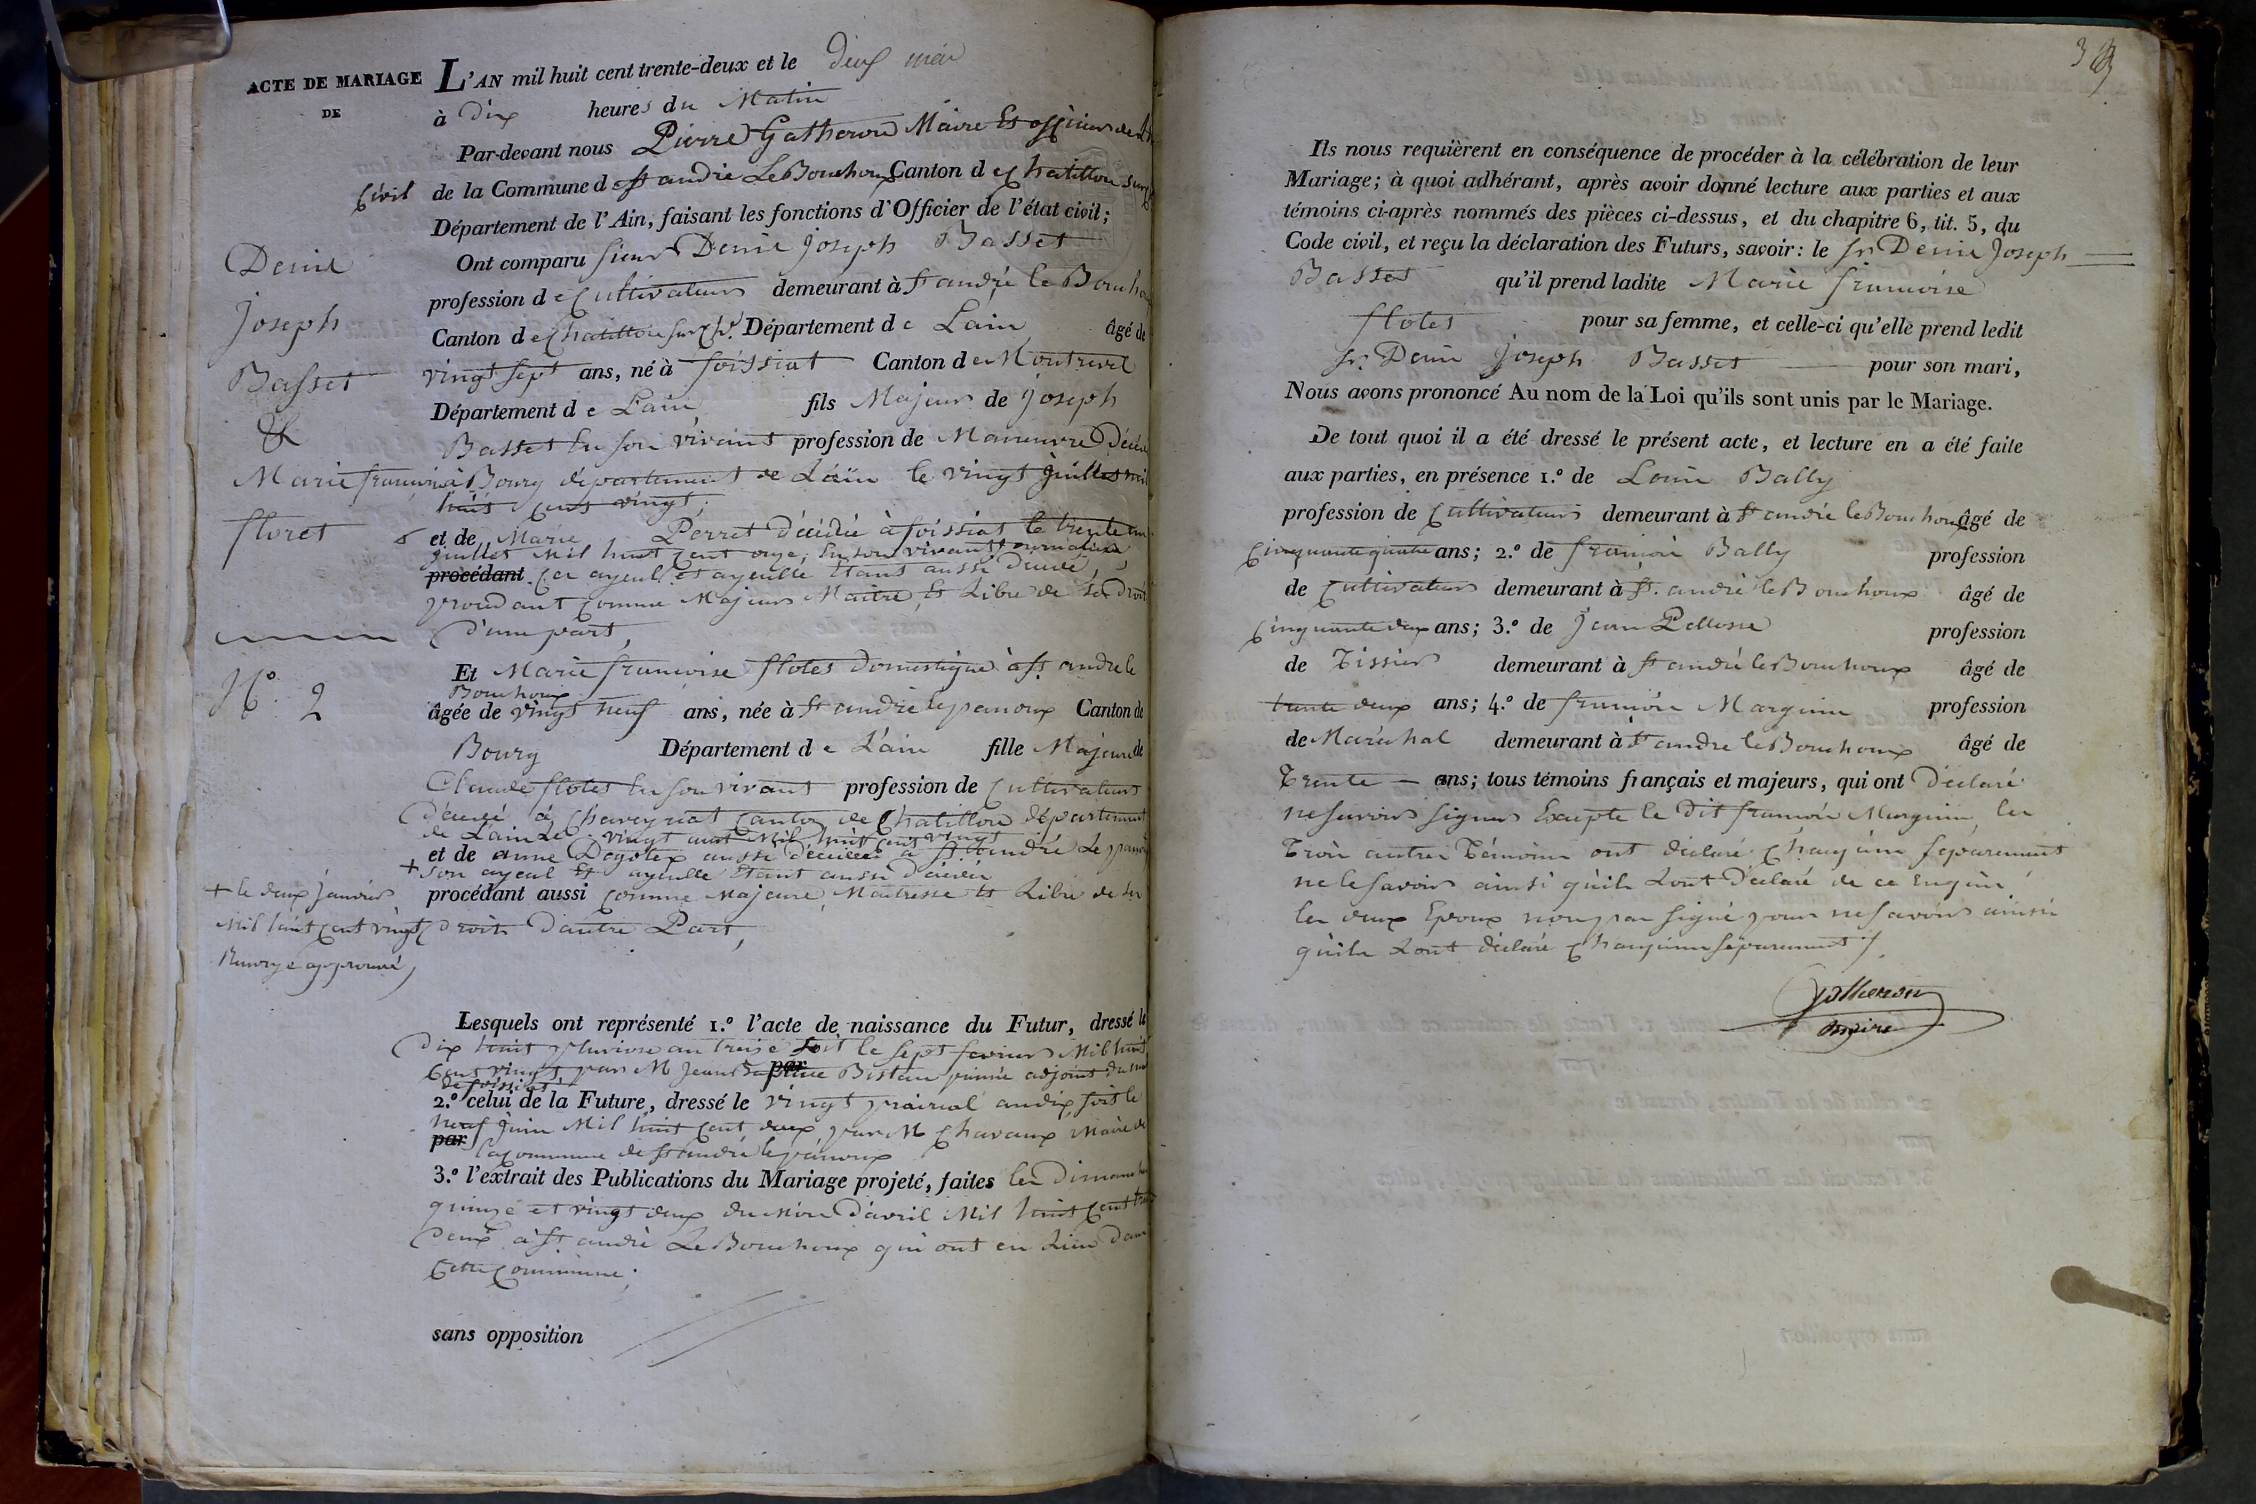 ACTE DE MARIAGE
DE
L'AN mil huit cent trente-deux et le deux mai
à dix heures du Matin
Par-devant nous Pierre Gatheron Maire Et officier de
Civil de la Commune de St andré Le Bouchoux Canton de Chatillon sur
Département de l'Ain, faisant les fonctions d'Officier de l'état civil;
Ont comparu sieur Denis joseph Basset
profession de Cultivateur demeurant à St andré le Bouchoux
Canton de Chatillon sur Ch. Département de Lain âgé de
vingt sept ans, né à foissiat Canton de Montrevel
Département de Lain fils Majeur de joseph
Basset En son vivant profession de Maneuvre Décédé
à Bourg département de Lain le vingt juillet mil
huit cent vingt;
et de Marie Perret décédée à foissiat le trente un
juillet Mil huit cent onze, En son vivant journaliere
procédant Ces ayeul et ayeulle Etant aussi Décédé,
procedant comme Majeur Maitre Et Libre de ses droits
d'une part,
Denis
joseph
Basset
&
Marie françoise
floret
N.º 2
Et Marie françoise flotes domestique à St. andre le
Bouchoux
âgée de vingt neuf ans, née à St andré le panoux Canton de
Bourg Département de Lain fille Majeure de
Claude flotes En son vivant profession de Cultivateur
décédé à Chaveyriat canton de Chatillon département
de Lain Le vingt aout Mil huit cent vingt
et de anne aussi décédée à St. andré Le panoux
+ son ayeul Et ayeulle Etant aussi décédés
procédant aussi comme Majeure, Maitresse Et Libre de ses
droits d'autre Part,
+ le deux janvier
Mil huit cent vingt
Renvoye approuvé,
Lesquels ont représenté 1.º l'acte de naissance du Futur, dressé le
Dix huit pluviose an treise soit le sept fevrier Mil huit
Cent vingt par M Jean Baptiste adjoint du
par
de foissiat
2.º celui de la Future, dressé le vingt prairial an dix, soit le
neuf juin Mil huit cent deux par M Chavaux Maire de
par la commune de St andré le panoux
3.º l'extrait des Publications du Mariage projeté, faites les Dimanches
quinze et vingt deux du Mois d'avril Mil huit cent trente
deux à St andré Le Bouchoux qui ont eu Lieu dans
Cette Commune;
sans opposition
Ils nous requièrent en conséquence de procéder à la célébration de leur
Mariage; à quoi adhérant, après avoir donné lecture aux parties et aux
témoins ci-après nommés des pièces ci-dessus, et du chapitre 6, tit. 5, du
Code civil, et reçu la déclaration des Futurs, savoir: le Sr. Denis Joseph
Basset qu'il prend ladite Marie francoise
flotes pour sa femme, et celle-ci qu'elle prend ledit
Sr. Denis joseph Basset pour son mari,
Nous avons prononcé Au nom de la Loi qu'ils sont unis par le Mariage.
De tout quoi il a été dressé le présent acte, et lecture en a été faite
aux parties, en présence 1.º de Louis Bally
profession de Cultivateur demeurant à St andré le Bouchoux âgé de
Cinquante quatre ans; 2.º de françois Bally profession
de Cultivateur demeurant à St. andré le Bouchoux âgé de
Cinquante deux ans; 3.º de Jean profession
de Tissier demeurant à St andré le Bouchoux âgé de
trente deux ans; 4.º de françois Marguin profession
de Maréchal demeurant à St andre le Bouchoux âgé de
Trente ans; tous témoins français et majeurs, qui ont déclaré
ne savoir signer Excepte le dit françois Marguin, les
Trois autres Témoins ont declaré chaqun separement
ne le savoir ainsi qu'ils Lont déclaré de ce Enquis
les deux Epoux non pas signé pour ne savoir ainsi
qu'ils Lont déclaré chaqun separement /.
Gatheron
maire